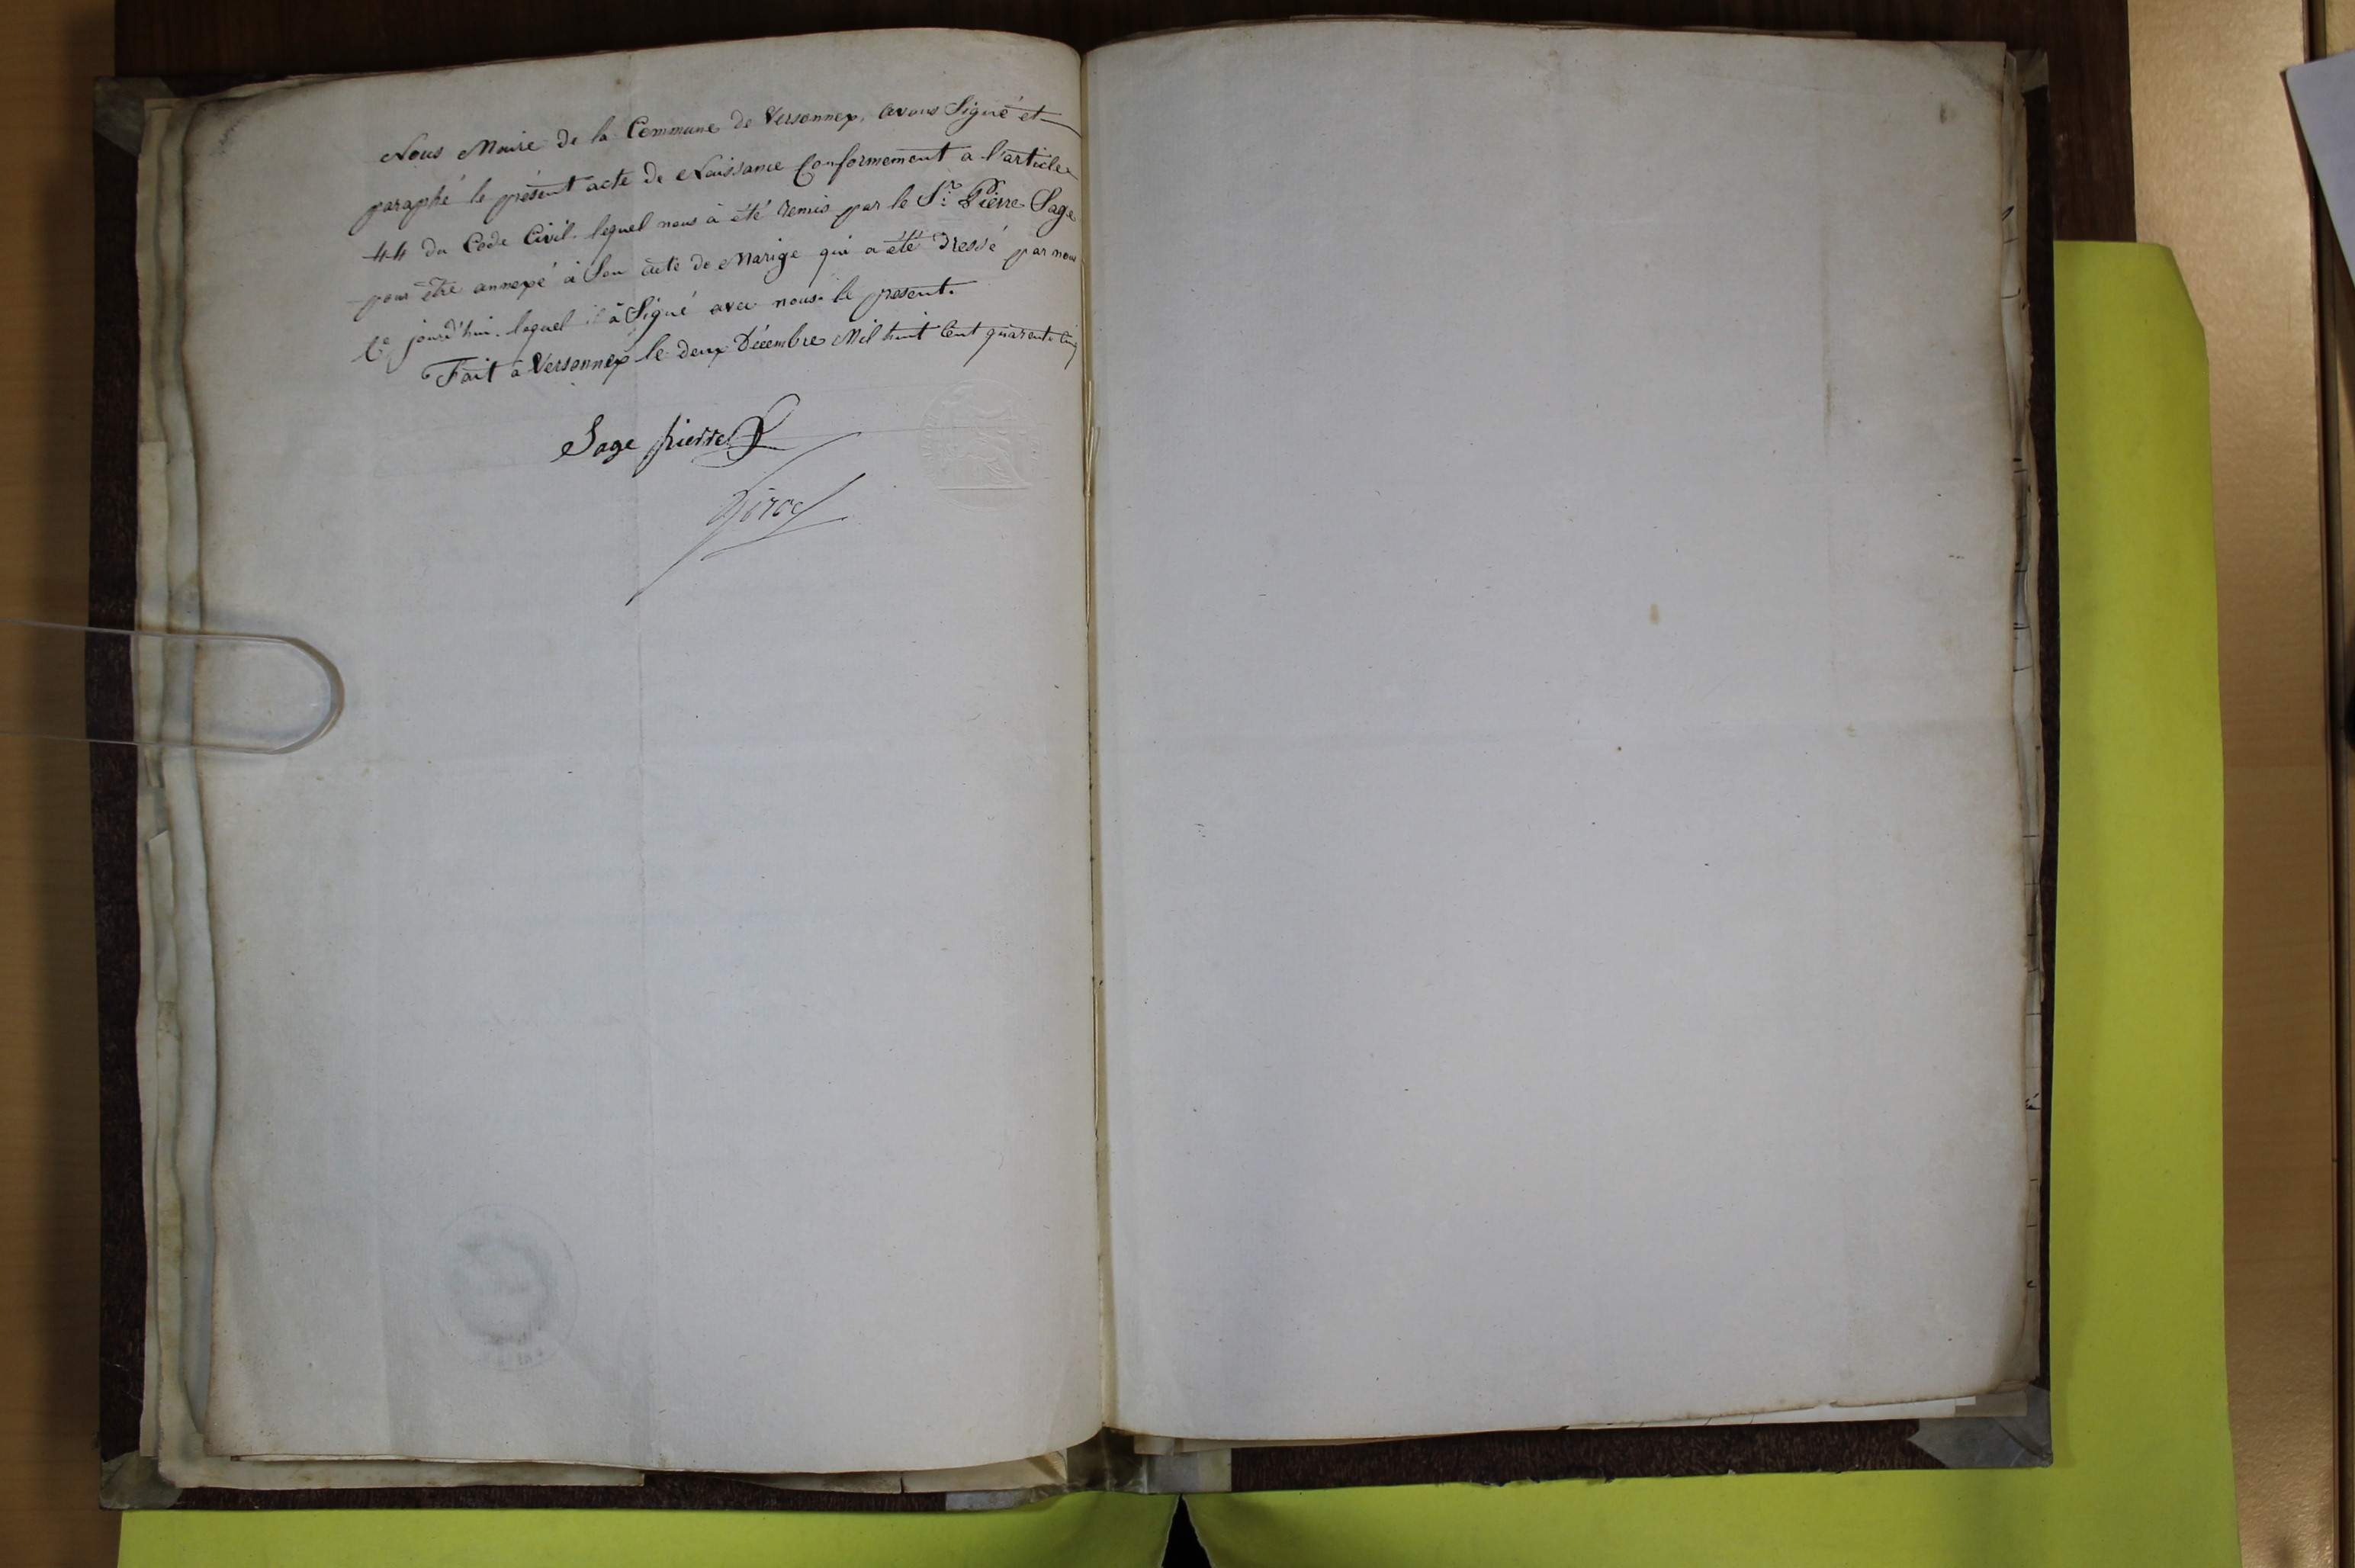 Nous Maire de la Commune de Versonnex, avons Signé et
paraphé le présent acte de Naissance Conformement a l'article
44 du Code Civil. lequel nous à été remis par le S.r Pierre Sage
pour être annexé à Son acte de Marige qui a été dressé par nous
Ce jourd'hui. lequel il à Signé avec nous. le présent.
Fait à Versonnex le deux Décembre Mil huit Cent quarente Cinq
Sage pierre